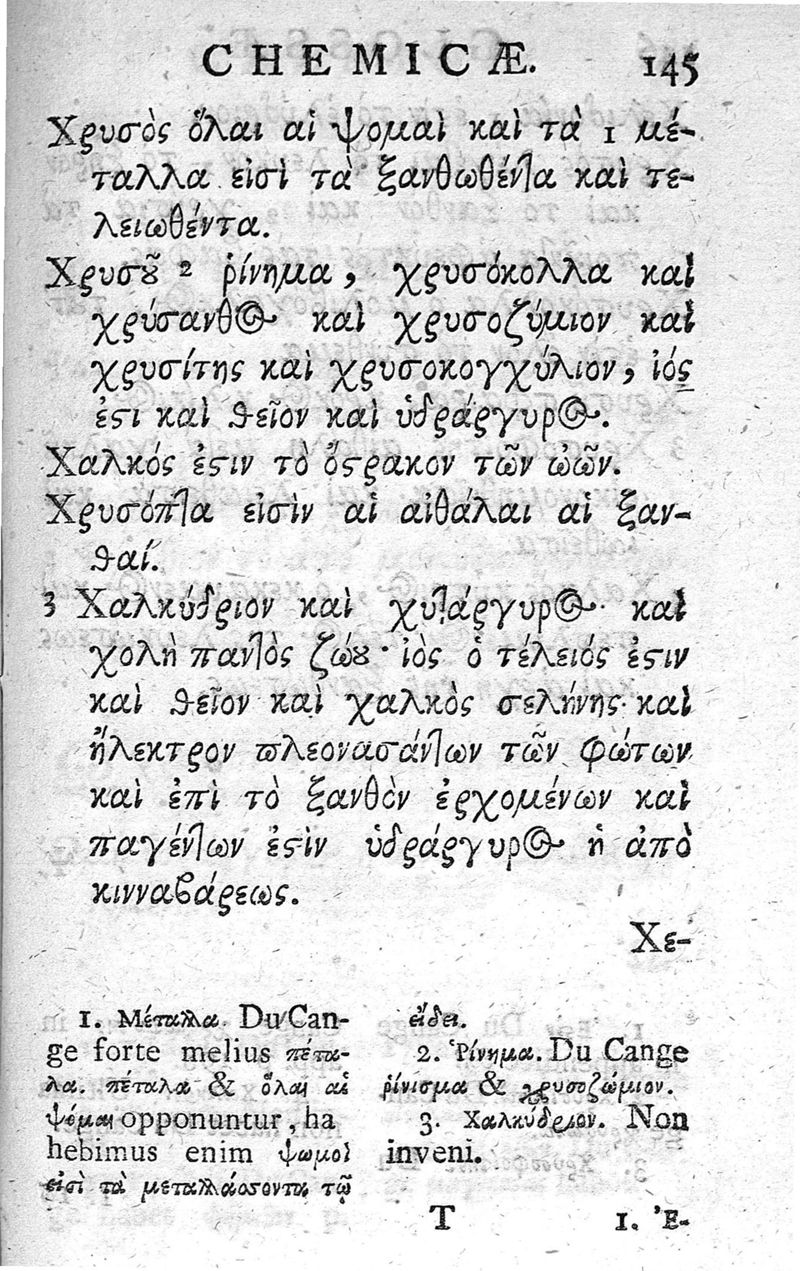 CHEMICÆ. 145
Χρυσὸς ὅλαι αἱ ψομαὶ καὶ τὰ 1 μέ-
ταλλα εἰσὶ τὰ ξανθωθέντα καὶ τε-
λειωθέντα.
Χρυσοῦ 2 ῥίνημα, χρυσόκολλα καὶ
χρύσανθος καὶ χρυσοζύμιον καὶ
χρυσίτης καὶ χρυσοκογχύλιον, ἰός
ἐστι καὶ θεῖον καὶ ὑδράργυρος.
Χαλκός ἐστιν τὸ ὄστρακον τῶν ὠῶν.
Χρυσόπτα εἰσὶν αἱ αἰθάλαι αἱ ξαν-
θαί.
3 Χαλκύδριον καὶ χυτάργυρος· καὶ
χολὴ παντὸς ζώου· ἰὸς ὁ τέλειός ἐστιν
καὶ θεῖον καὶ χαλκὸς σελήνης· καὶ
ἤλεκτρον πλεονασάντων τῶν φώτων
καὶ ἐπὶ τὸ ξανθὸν ἐρχομένων καὶ
παγέντων ἐστὶν ὑδράργυρος ἡ ἀπὸ
κινναβάρεως.
Χε-
1. Μέταλλα. Du Can-
ge forte melius πέτα-
λα. πέταλα & ὅλαι αἱ
ψόμαι opponuntur, ha
hebimus enim ψωμοὶ
εἰσὶ τὰ μεταλλάσσοντα τῷ
εἴδει.
2. Ῥίνημα. Du Cange
ῥίνισμα & χρυσοζώμιον.
3. Χαλκύδριον. Non
inveni.
T 1. Ἐ-